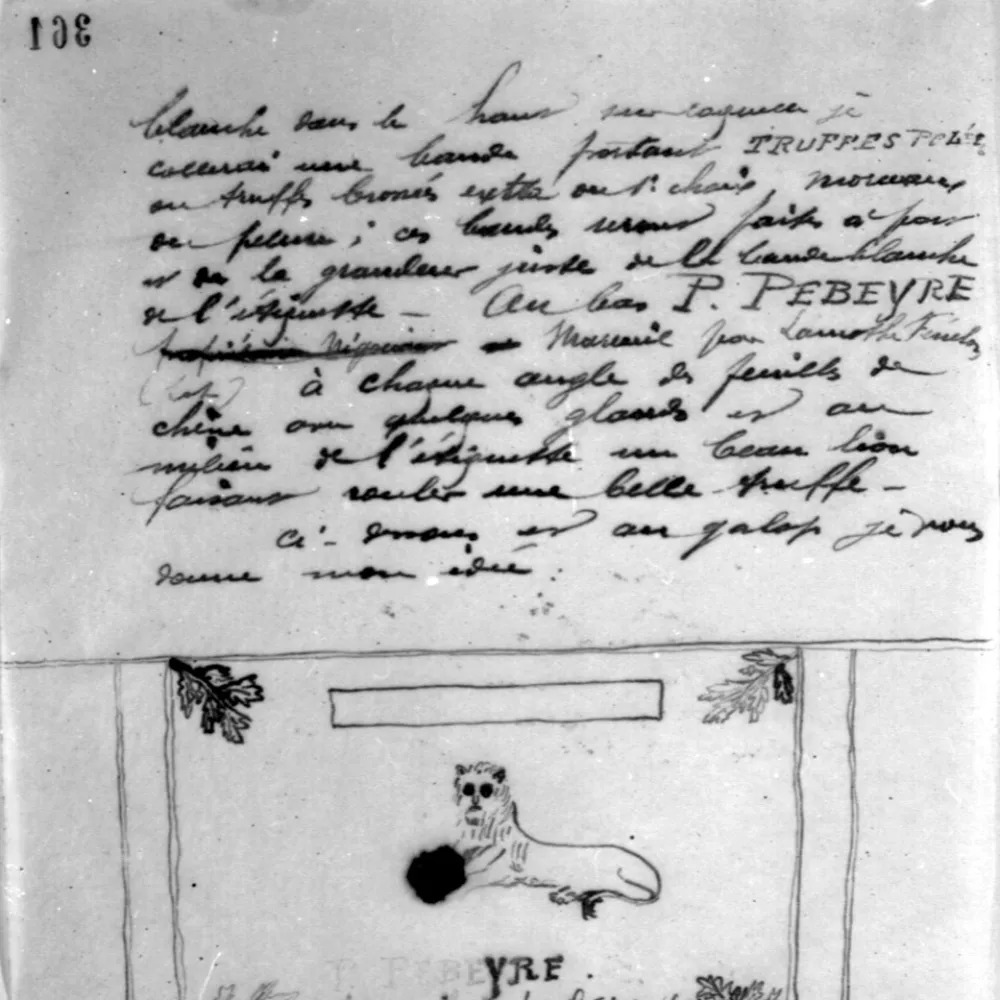 361
blanche dans le haut sur laquelle je
collerai une bande portant TRUFFES PELÉES
ou truffes brossées extra ou 1r choix, morceaux
ou pelures ; ces bandes seront faites à part
et de la grandeur juste de la bande blanche
de l'étiquette — Au bas P. PEBEYRE
propriétaire Négociant Mareuil par Lamothe Fénelon
(Lot) à chaque angle des feuilles de
chêne avec quelques glands et au
milieu de l'étiquette un beau lion
faisant rouler une belle truffe —
ci-dessous et au galop je vous
donne mon idée.
P. PEBEYRE.